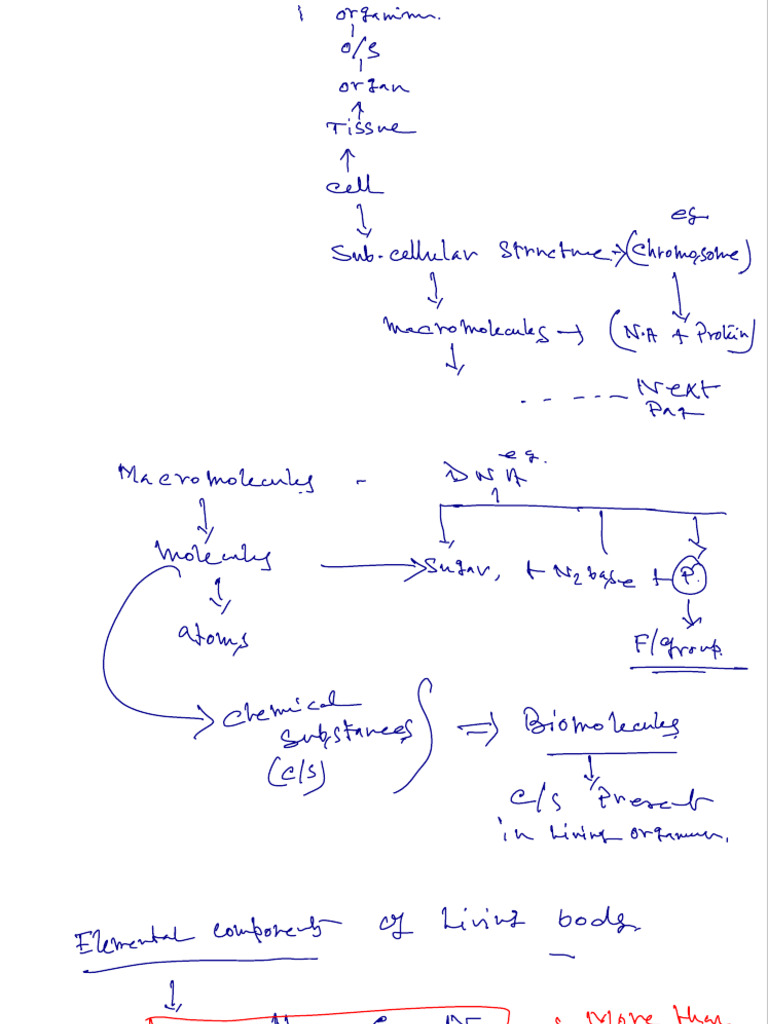 1 organism.
O/S
organ
Tissue
cell
eg
Sub-cellular Structure → (Chromosome)
Macromolecules → (N.A + Protein)
. - - - - - Next
Pag
eg.
Macromolecules - DNA
Molecules → Sugar, + N2 base + P.
atoms
F/group.
Chemical
Substances
(C/S)
⇒ Biomolecules
C/S Present
in Living organism.
Elemental components of Living body
More than